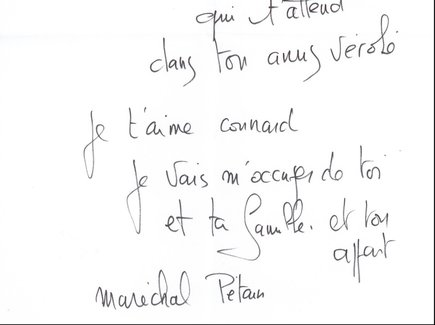 qui t'attend
dans ton anus vérolé
Je t'aime connard
Je vais m'occuper de toi
et ta famille. et ton
appart
maréchal Pétain